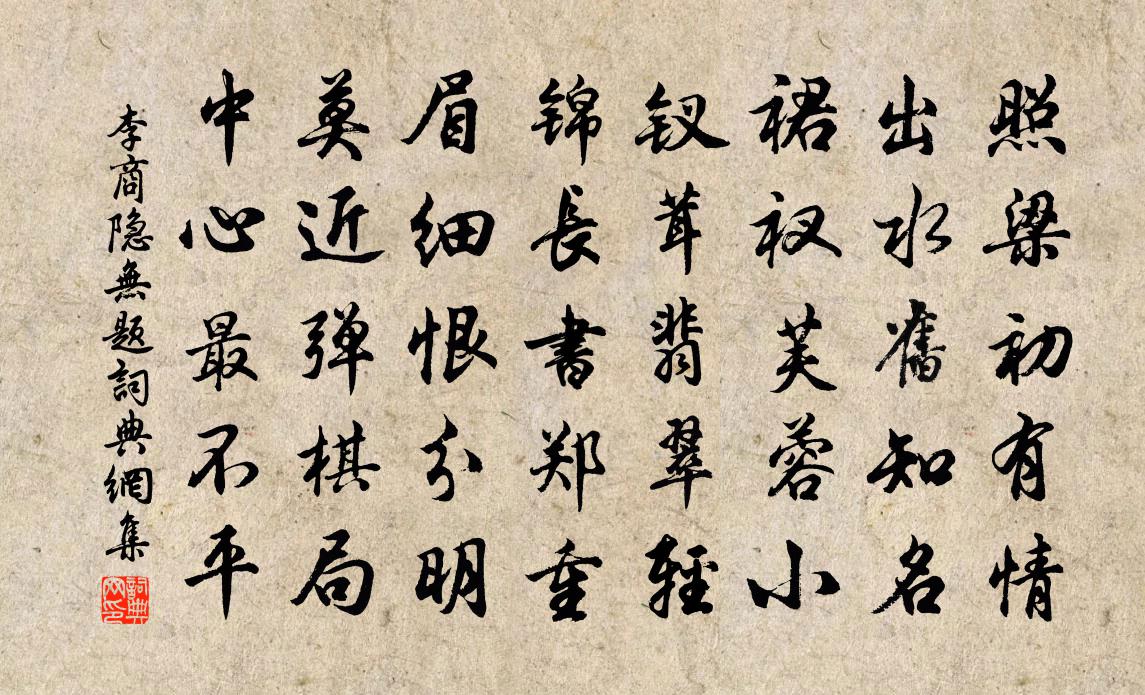 照梁初有情
出水舊知名
裙衩芙蓉小
钗茸翡翠轻
锦長書郑重
眉细恨分明
莫近弹棋局
中心最不平
李商隐無题詞典網集
詞典网印